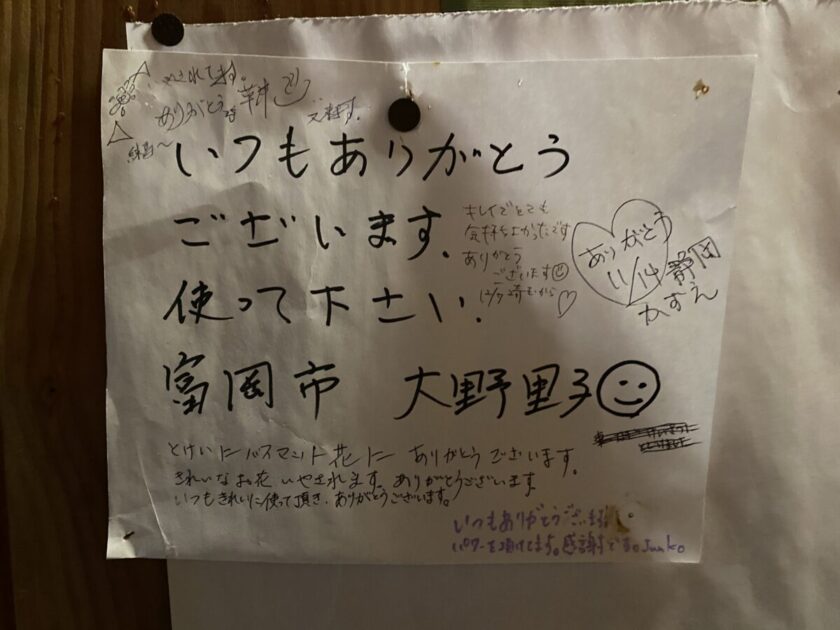 ありがとう
又来ます。
いつもありがとう
ございます。
使って下さい。
富岡市 大野里子
キレイでとても
気持ちよかったです
ありがとう
ございます
12/7 埼玉から
ありがとう
11/14 静岡
かずえ
とけいにバスマット花に ありがとうございます。
きれいなお花 いやされます。ありがとうございます
いつもきれいに使って頂き、ありがとうございます。
いつもありがとうございます
パワーを頂けてます。感謝です。Junko